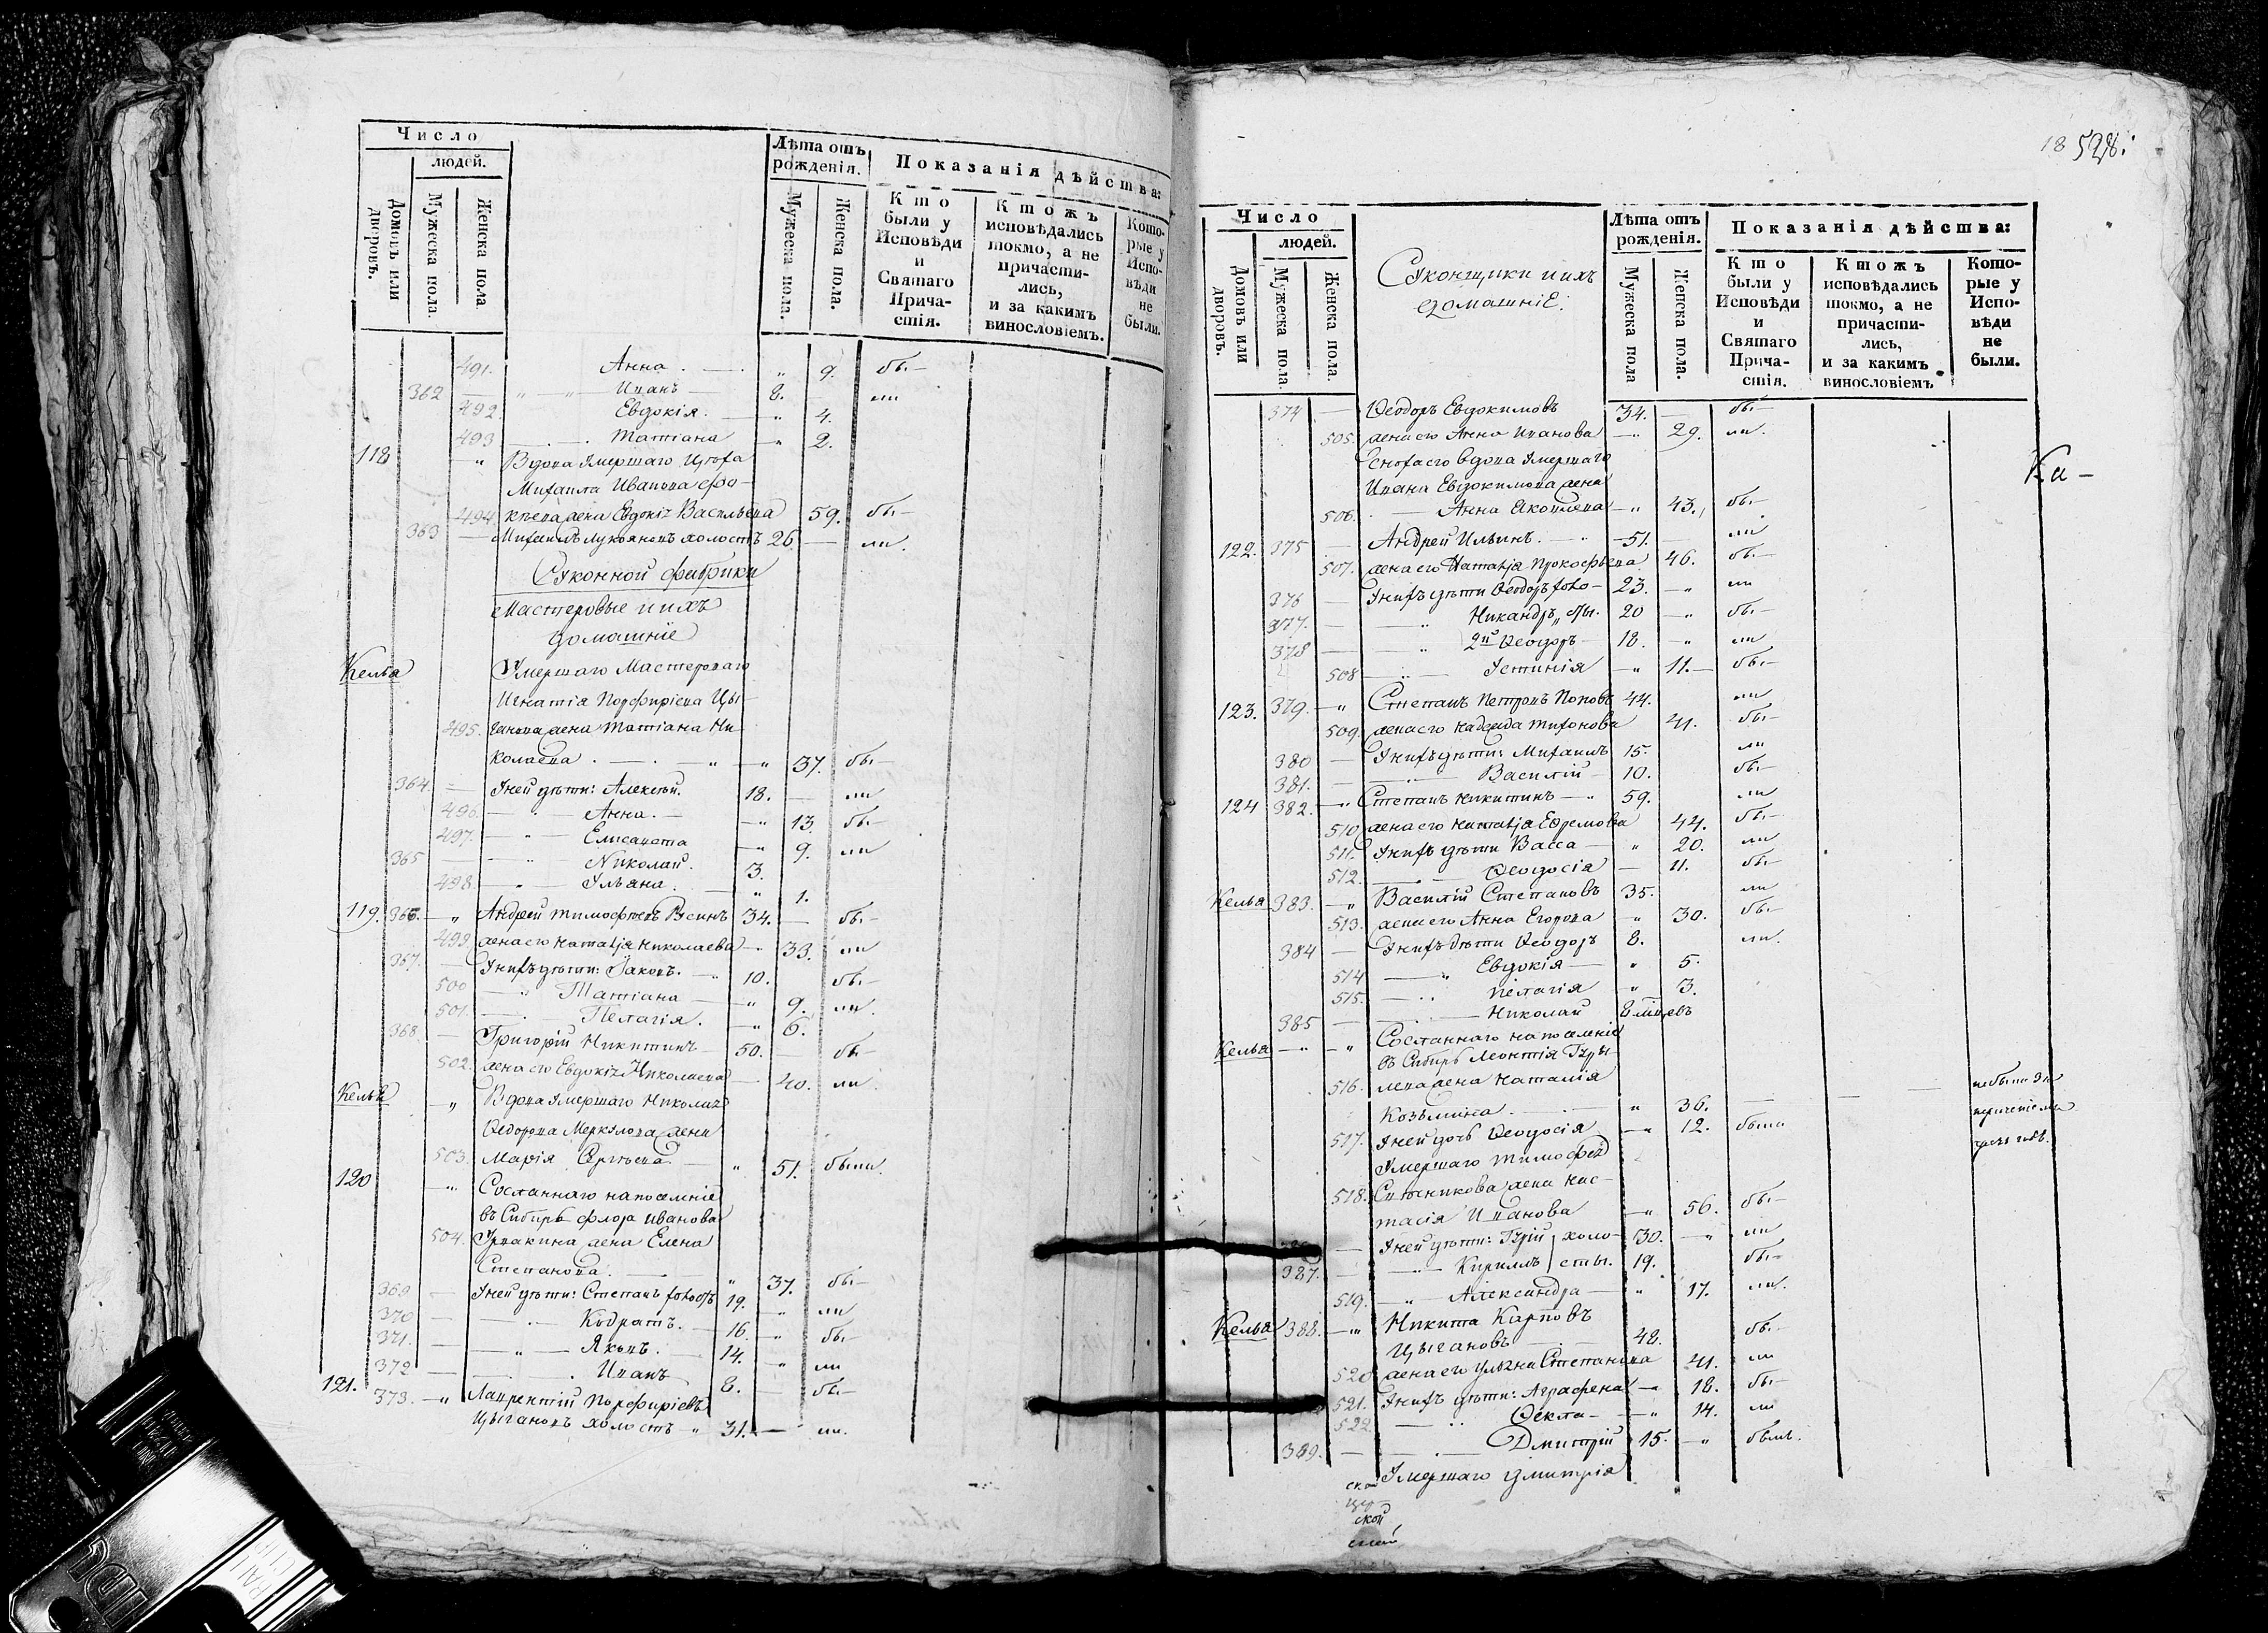 Число
людей.
Домовъ или дворовъ.
Мужеска пола.
Женска пола
Лѣта отъ рожденія.
Мужеска пола.
Женска пола.
Показанія дѣйства:
Кто были у Исповѣди и Святаго Причастія.
Ктожъ исповѣдались токмо, а не причастились, и за какимъ винословіемъ.
Которые у Исповѣди не были.
491. Анна . — . „ 9. бы—
362 — „ „ Иванъ — 8. — ли
492 Евдокія. — „ 4.
493 — . — . Татіана — „ 2.
118 „ Вдова Умершаго
Михаила Иванова
494 жена Евдокія Васильева 59. бы—
363 — Михаилъ Лукояновъ холостъ 26. — ли.
Суконной фабрики
Мастеровые и ихъ
домашніе
Келья Умершаго Мастероваго
Игнатія Порфиріева Цы-
495. ганова жена Татіана Ни-
колаева . — . — „ — „ 37. бы—
364. — У ней дѣти: Алексѣй. 18. — ли
496. — „ — Анна. — — „ 13. бы—
497. — „ — Елисавета — „ 9. ли
365 — — „ Николай. 3.
498. — „ — Ульяна. — „ 1.
119. 366. — „ Андрей Тимофѣевъ Русинъ 34. — бы—
499. жена его Наталья Николаева — „ 33. ли
367. — У нихъ дѣти: Яковъ. — „ 10. бы—
500 — „ Татіана — — „ 9. ли.
501. — . — Пелагія. — „ 6.
368. — Григорій Никитинъ — 50. — бы—
502. жена его Евдокія Николаева — 40. ли.
Келья „ Вдова Умершаго Николая
Ѳедорова Меркулова жена
503. Марія — „ 51. были.
120 „ Сосланнаго на поселеніе
въ Сибирь Флора Иванова
504. жена Елена
Степанова. — — „ 37. бы—
369 — У ней дѣти: Степанъ 19. — „ ли
370 — — . — Кодратъ. — 16. — „ бы—
371. — — „ — Яковъ. — 14. „ ли
372 — — . Иванъ 8. — бы—
121. 373. — „ Лаврентій Порфиріевъ
Цыгановъ холостъ „ 31. — ли.
18 528.
Число
людей.
Домовъ или дворовъ.
Мужеска пола
Женска пола.
Суконщики и ихъ
домашніе.
Лѣта отъ рожденія.
Мужеска пола
Женска пола.
Показанія дѣйства:
Кто были у Исповѣди и Святаго Причастія.
Ктожъ исповѣдались токмо, а не причастились, и за какимъ винословіемъ.
Которые у Исповѣди не были.
374 — Ѳеодоръ Евдокимовъ 34. — бы—
505. жена его Анна Иванова — „ 29. ли.
Сноха его вдова Умершаго
Ка-
Ивана Евдокимова жена
506. — Анна Яковлева — „ 43. бы—
122. 375 — Андрей Ильинъ. — „ 51. — ли
507. жена его Наталья Прокофьева 46. бы—
376 — У нихъ дѣти Ѳеодоръ холо- 23. — „ ли
377. — „ Никандръ „ сты. 20 — „ бы—
378 — „ 2й Ѳеодоръ 18. — „ ли
508 — „ — Устинія — „ 11. — бы—
123. 379. — „ Степанъ Петровъ Поповъ 44. ли
509. жена его Надежда Тихонова 41. бы—
380 — У нихъ дѣти: Михаилъ 15. ли
381. — — . — Василій — 10. бы—
124 382. — „ Степанъ Никитинъ — „ 59. ли
510 жена его Наталья Ефремова 44. бы—
511. У нихъ дѣти Васса — „ 20. ли
512. — — Ѳеодосія — 11. бы—
Келья 383. — „ Василій Степановъ 35. ли
513. жена его Анна Егорова — „ 30. бы—
384 — У нихъ дѣти Ѳеодоръ 8. ли.
514 — „ Евдокія — „ 5.
515. — . . Пелагія — „ 3.
385 — — . — Николай 8 м-цевъ
Келья — „ — „ Сосланнаго на поселеніе
въ Сибирь Леонтія
516. жена Наталія — не была за
Козьмина. — . — „ 36. — —
517. У ней дочь Ѳеодосія — „ 12. была
Умершаго Тимофея
518. Ситникова жена Нас-
тасія Иванова — „ 56. бы—
— У ней дѣти: Гурій } холо- 30. — „ ли
387. — — „ — Кириллъ } сты. 19. бы—
519. — „ — Александра — „ 17. ли.
Келья 388. — „ Никита Карповъ
Цыгановъ — — 48. бы—
520 жена его Ульяна Степанова 41. ли
521. У нихъ дѣти: Аграфена — „ 18. бы—
522. — . . Ѳекла — — „ 14. ли
389. — — . — Дмитрій 15. — „ былъ.
Умершаго Дмитрія
ской